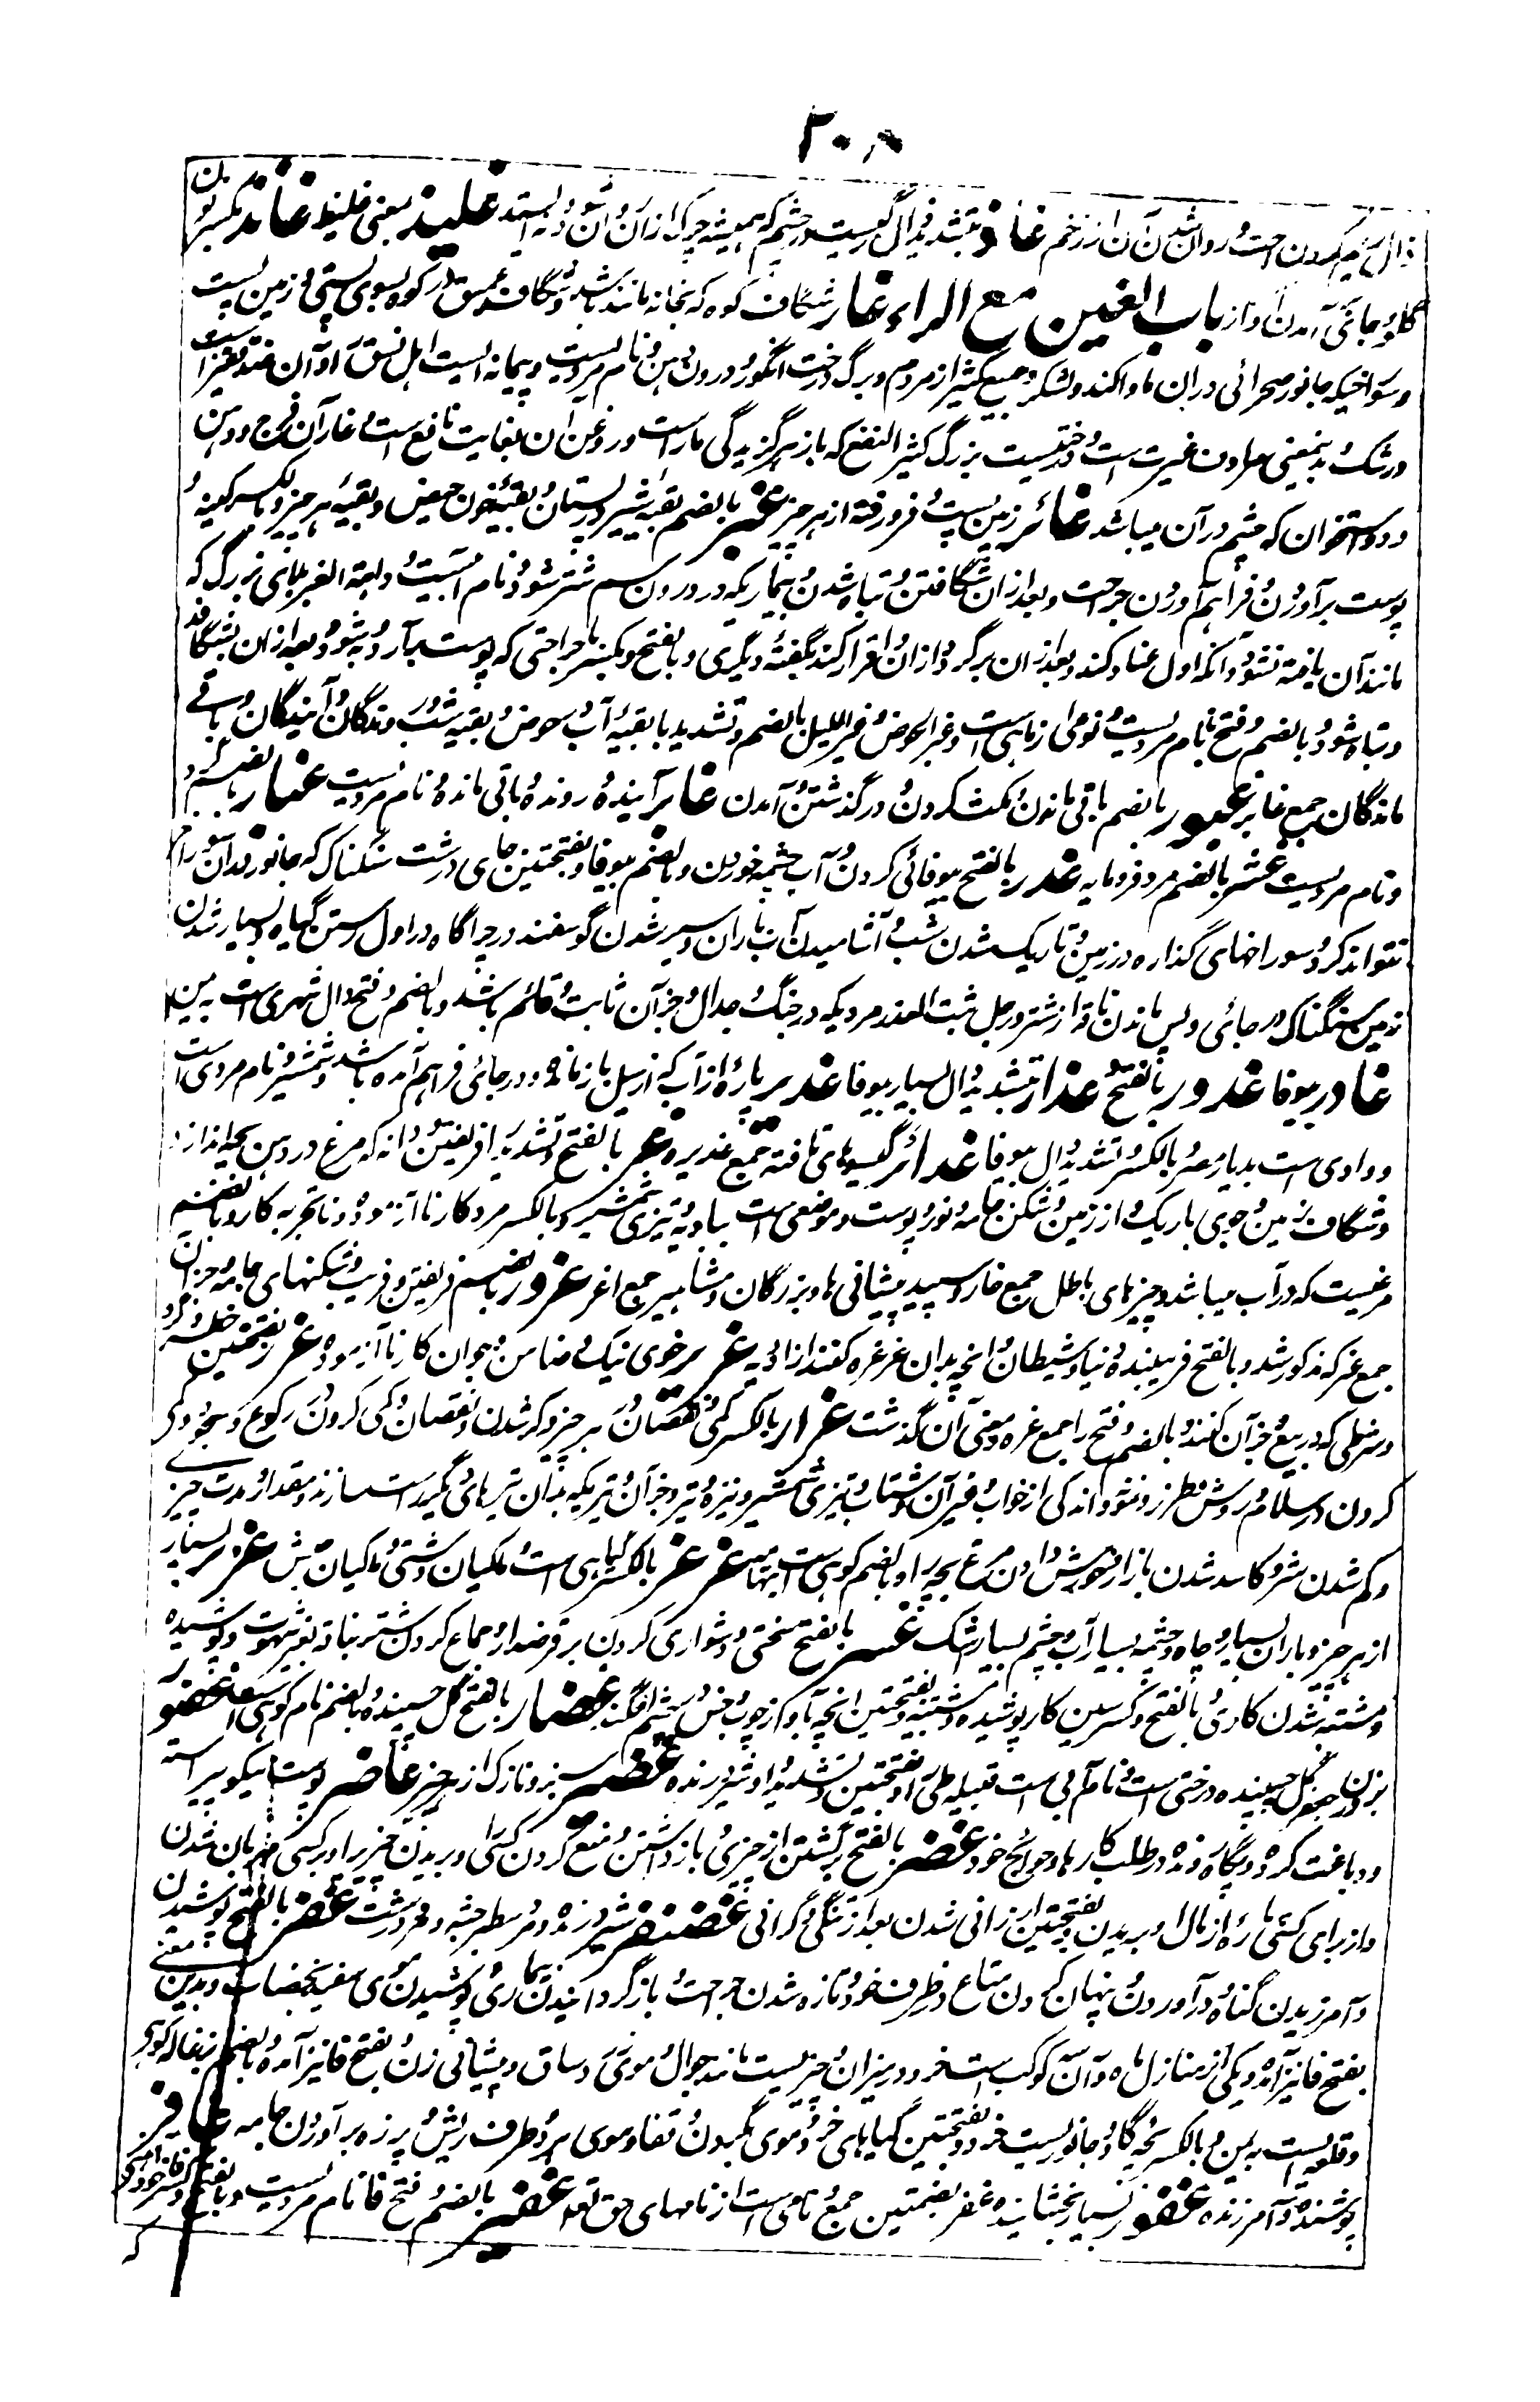 ۳۰۸
ذال ریم کردن جراحت و روان شدن آن از زخم غاذ بتشدید ذال رگیست در چشم که همیشه چرک ازان روان شود و نه ایستد غلیذ بمعنی غلیظ غاند بکسر نون
گلو و جائی آمدن آواز باب الغین مع الراء غار شگاف کوه که بخانه مانند باشد و شگاف عمیق در کوه بسوی پستی و زمین پست
و سوراخیکه جانور صحرائی دران ماوا کند و لشکر و جمع کثیر از مردم و برگ درخت انگور و درون دهن و نام مردیست و پیمانه ایست اهل نسف را و آن صد قفیز است
و رشک و بدینمعنی مرادف غیرت است و درختیست بزرگ کثیر النفع که بازهر گزیدگی مار است و روغن ان بغایت نافع است و غاران فرج و دهن
و دو استخوان که چشم در آن میباشد غائر زمین پست و فرو رفته از هر چیز غبر بالضم بقیه شیر در پستان و بقیه خون حیض و بقیه هر چیز و بالکسر کینه و
پوست بر آوردن و فراهم آوردن جراحت و بعد ازان شگافتن و تباه شدن و بیماریکه در درون سم شتر شود و نام آبیست و داهیة الغبر بلای بزرگ که
مانند آن یافته نشود و آنکه اول عناد کند و بعد ازان برگردد ازان و اقرار کند بگفته دیگری و بالفتح و بکسر با جراحتی که پوست برآورده شود و بعد ازان بشگافد
و تباه شود و بالضم و فتح با نام مردیست و نوعی از ماهی است و غبر الحوض و غبر اللیل بالضم و تشدید با بقیه آب حوض و بقیه شب و روندگان و آیندگان و باقی
ماندگان جمع غابر غبور بالضم باقی ماندن و مکث کردن و در گذشتن و آمدن غابر آینده و رونده و باقی مانده و نام مردیست غبار بالضم گرد
و نام مردیست غثر بالضم مرد فرومایه غدر بالفتح بیوفائی کردن و آب چشمه خوردن و بالضم بیوفا و بفتحتین جای درشت سنگناک که جانور دران سوراخ
نتواند کرد و سوراخهای گذاره در زمین و تاریک شدن شب و آشامیدن آب باران و سیر شدن گوسفند در چراگاه در اول رستن گیاه و بسیار شدن
زمین سنگناک در جائی و پس ماندن ناقه از شتر و رجل ثبت الغدر مردیکه در جنگ و جدال و جز آن ثابت و قائم باشد و بالضم و فتح دال شهری است به یمن
غادر بیوفا غدور بالفتح و غدار بتشدید دال بسیار بیوفا غدیر پاره از آب که از سیل باز ماند و در جائی فراهم آمده باشد و شمشیر و نام مردی است
و وادی است بدیار مضر و بالکسر و تشدید دال بیوفا غدائر گیسوهای بافته جمع غدیره غر بالفتح و تشدید را فریفتن و دانه که مرغ در دهن بچه اندازد
و شگاف زمین و جوی باریک از زمین و شکن جامه و نورد پوست و موضعی است ببادیه و تیزی شمشیر و بالکسر مرد کار ناآزموده و ناتجربه کار و بالضم
مرغیست که در آب میباشد و چیزهای باطل جمع غار و سپید پیشانی ها و بزرگان و مشاهیر جمع اغر غرور بالضم فریفتن و فریب و شکنهای جامه و جز آن
جمع غر که مذکور شد و بالفتح فریبنده و دنیا و شیطان و آنچه بدان غرغره کنند از ادویه غریر خوی نیک و ضامن و جوان کار ناآزموده غرر بفتحتین خطر و گرو
و شرطی که در بیع و جز آن کنند و بالضم و فتح را جمع غره و معنی آن گذشت غرار بالکسر کمی و نقصان هر چیز و کم شدن و نقصان و کمی کردن در رکوع و سجود و کمی
کردن در سلام و روش و طرز و نشو و اندکی از خواب و غیر آن و شتاب و تیزی شمشیر و نیزه و تیر و جز آن و تیریکه بدان تیرهای دیگر راست سازند و مقدار و مدت چیزی
و کم شدن شیر و کاسد شدن بازار و خورش دادن مرغ بچه را و بالضم کوهی است بتهامه غرغر بالکسر گیاهی است و ماکیان دشتی و ماکیان حبش غزیر بسیار
از هر چیز و باران بسیار و چاه و چشمه بسیار آب و چشم بسیار اشک غسر بالفتح سختی و دشواری کردن بر قرضدار و جماع کردن شتر بناقه بغیر شهوت و پوشیده
و مشتبه شدن کاری و بالفتح و کسر سین کار پوشیده و مشتبه و بفتحتین آنچه باد از چوب و خس در چشم افگند غضار بالفتح گل چسپنده و بالضم نام کوهی است غضور
بر وزن جعفر گل چسپنده و درختی است و نام آبی است قبیله طی را و بفتحتین و تشدید واو شیر درنده غضیر سبز و نازک از هر چیز غاضر پوست نیکو پیراسته
و دباغت کرده و پگاه رونده در طلب کارها و حوائج خود غضر بالفتح برگشتن از چیزی و بازداشتن و منع کردن کسی را و بریدن چیزی را و بر کسی مهربان شدن
و از برای کسی پاره از مال او بریدن و بفتحتین ارزانی شدن بعد از تنگی و گرانی غضنفر شیر درنده و مرد سطبر جثه و مرد درشت غفر بالفتح پوشیدن
و آمرزیدن گناه و در آوردن و پنهان کردن متاع در ظرف خود و تازه شدن جراحت و باز گردانیدن بیماری و پوشیدن موی سفید بخضاب و بدین معنی
بفتح فا نیز آمده و یکی از منازل ماه و آن سه کوکب است خرد در میزان و چیزیست مانند جوال و موی ساق و پیشانی زن و بفتح فا نیز آمده و بالضم بزغاله کوهی
و قلعه ایست به یمن و بالکسر بچه گاو و جانوریست خرد و بفتحتین گیاهای خرد و موی گردن و قفا و موی هر دو طرف ریش و پرزه بر آوردن جامه غافر
پوشنده و آمرزنده غفور بسیار بخشاینده غفر بضمتین جمع و نامی است از نامهای حق تعالی غفیر بالضم و فتح فا نام مردیست و بالفتح و کسر فا
که